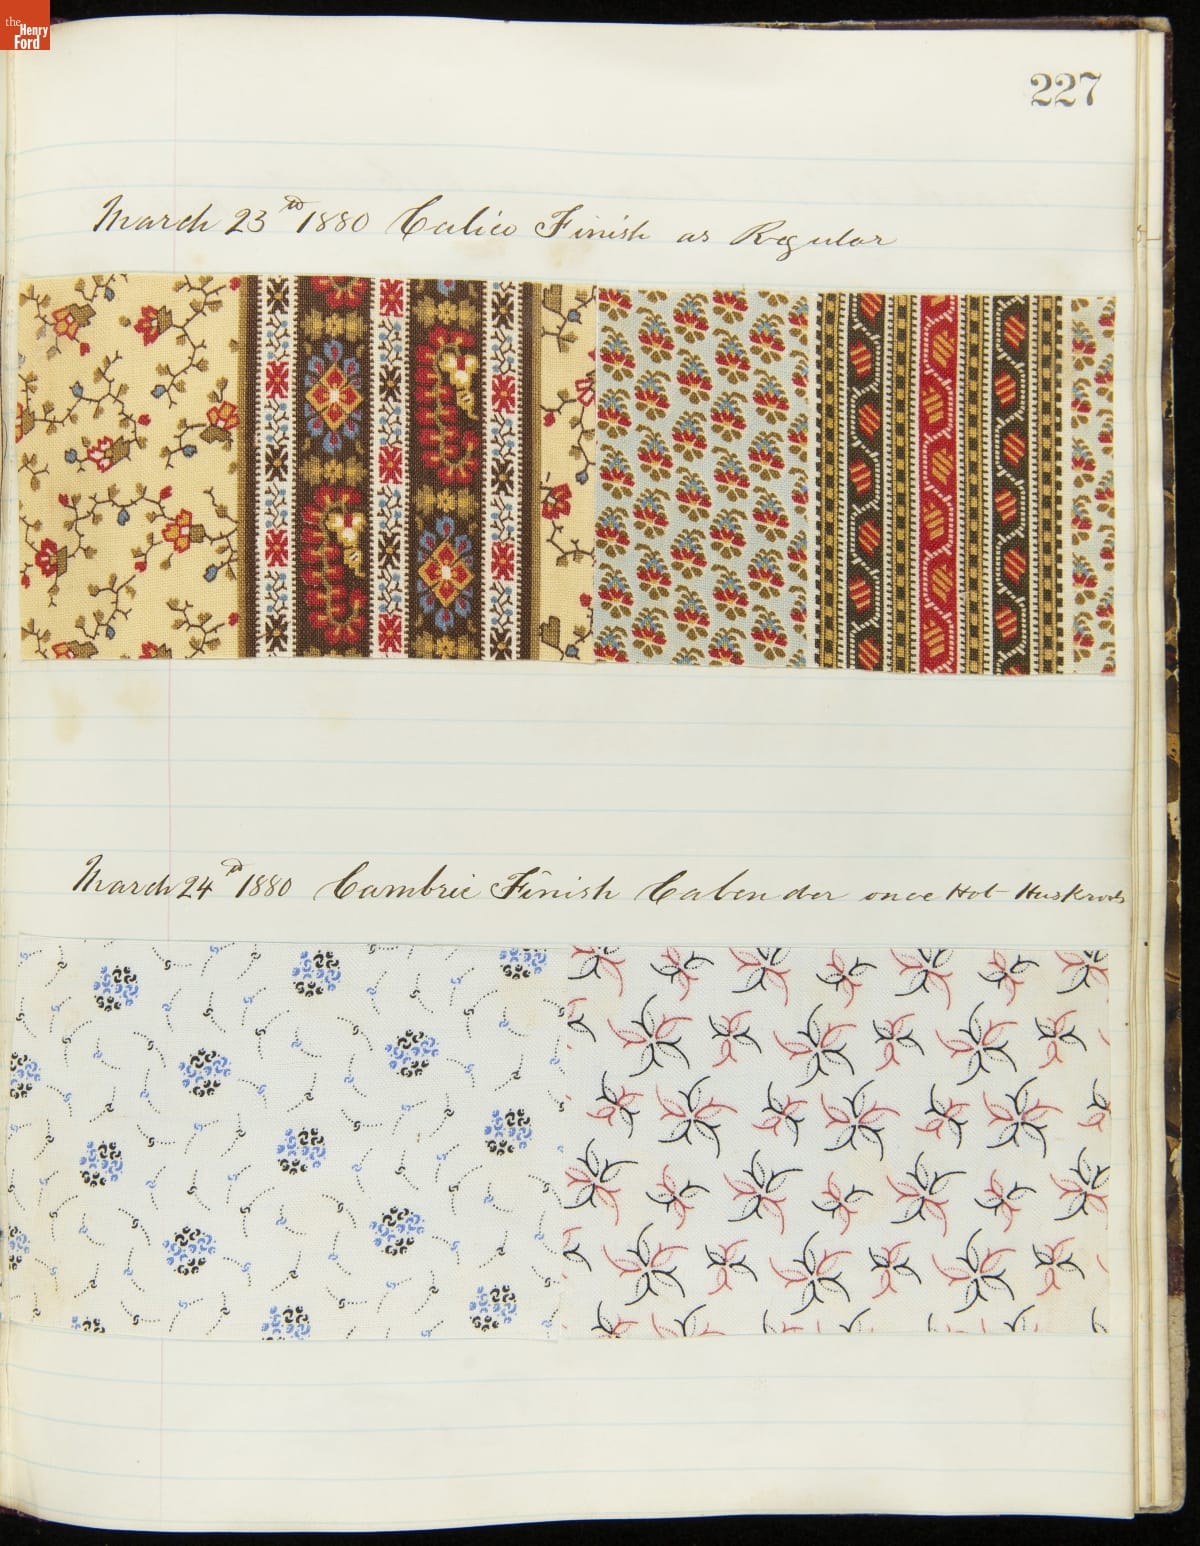 the
Henry
Ford
227
March 23rd 1880 Calico Finish as Regular
March 24th 1880 Cambric Finish Calender once Hot